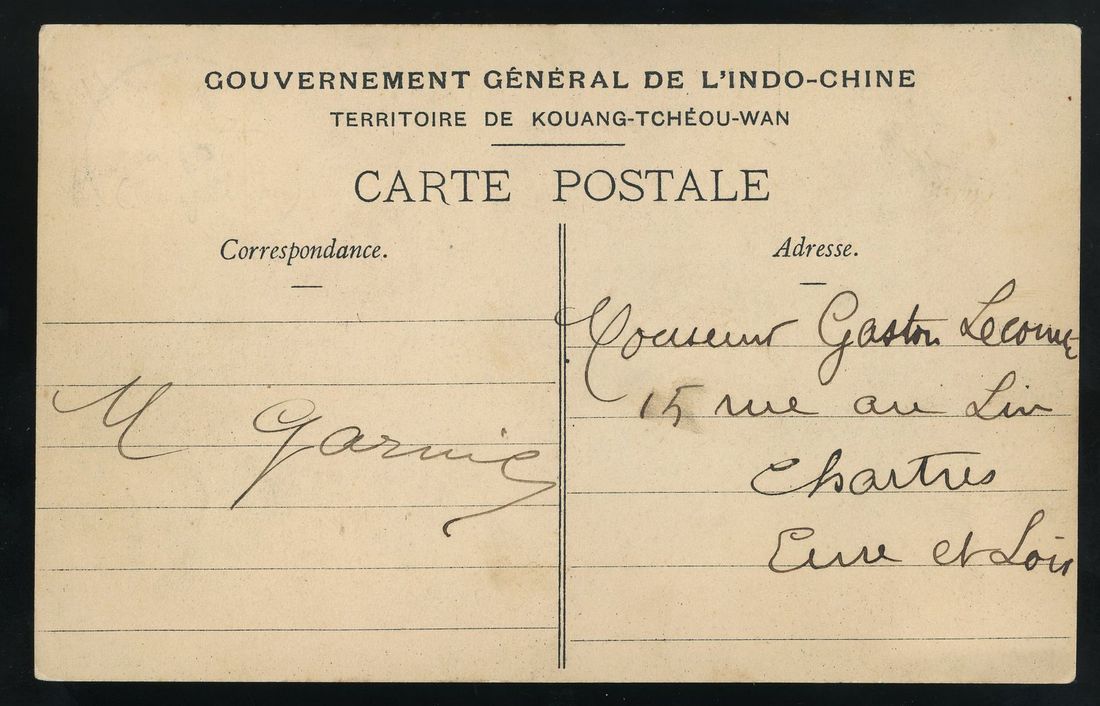 GOUVERNEMENT GÉNÉRAL DE L'INDO-CHINE
TERRITOIRE DE KOUANG-TCHÉOU-WAN
CARTE POSTALE
Correspondance.
M Garnie
Adresse.
Monsieur Gaston Lecomte
15 rue au Lin
Chartres
Eure et Loir